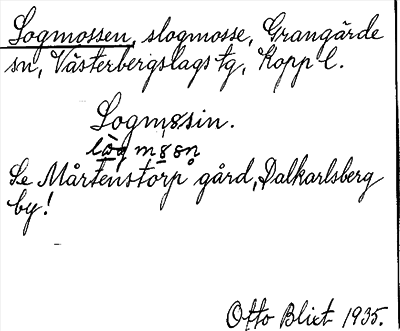 Logmossen, slogmosse, Grangärde
sn, Västerbergslags tg, Kopp l.
Logm8sin.
lòg m8sn̥
Se Mårtenstorp gård, Dalkarlsberg
by!
Otto Blixt 1935.